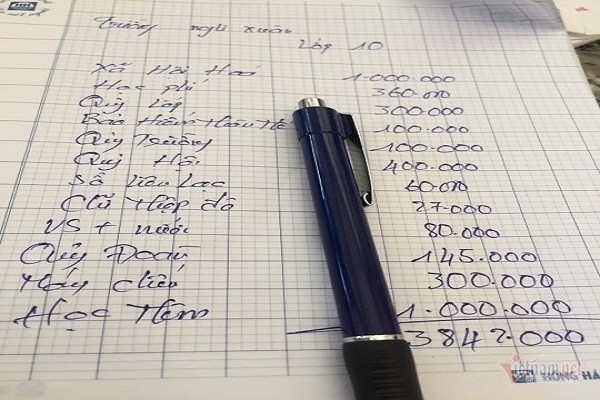 Trường nghi xuân
Lớp 10
Xã Hội Hoá 1.000.000
Học phí 360.000
Qũy Lớp 300.000
Bảo Hiểm Thân Thể 100.000
Qũy Trường 100.000
Quỹ Hội 400.000
Sổ liên Lạc 60.000
Chữ thập đỏ 27.000
VS + nước 80.000
Qũy Đoàn 145.000
Máy chiếu 300.000
Học Thêm 1.000.000
3842.000
vietnamnet
HONG HA